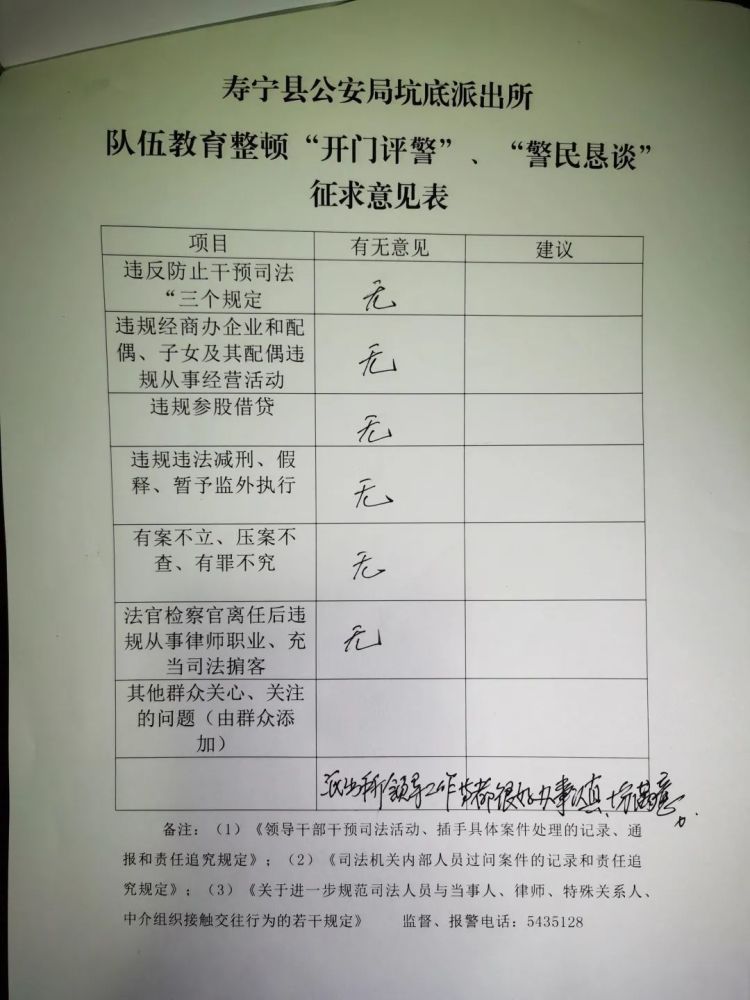 寿宁县公安局坑底派出所
队伍教育整顿“开门评警”、“警民恳谈”
征求意见表
项目 有无意见 建议
违反防止干预司法
“三个规定 无
违规经商办企业和配
偶、子女及其配偶违 无
规从事经营活动
违规参股借贷 无
违规违法减刑、假
释、暂予监外执行 无
有案不立、压案不
查、有罪不究 无
法官检察官离任后违
规从事律师职业、充 无
当司法掮客
其他群众关心、关注
的问题（由群众添
加）
派出所领导工作都很好办事认真
备注：（1）《领导干部干预司法活动、插手具体案件处理的记录、通
报和责任追究规定》；（2）《司法机关内部人员过问案件的记录和责任追
究规定》；（3）《关于进一步规范司法人员与当事人、律师、特殊关系人、
中介组织接触交往行为的若干规定》 监督、报警电话：5435128